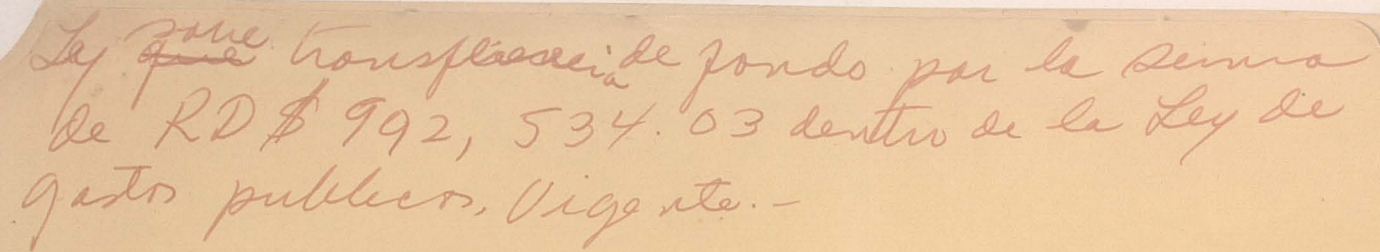 Ley sove que transferencia de fondo por la suma
de RD$ 992, 534.03 dentro de la Ley de
gastos publicos, Vigente.-